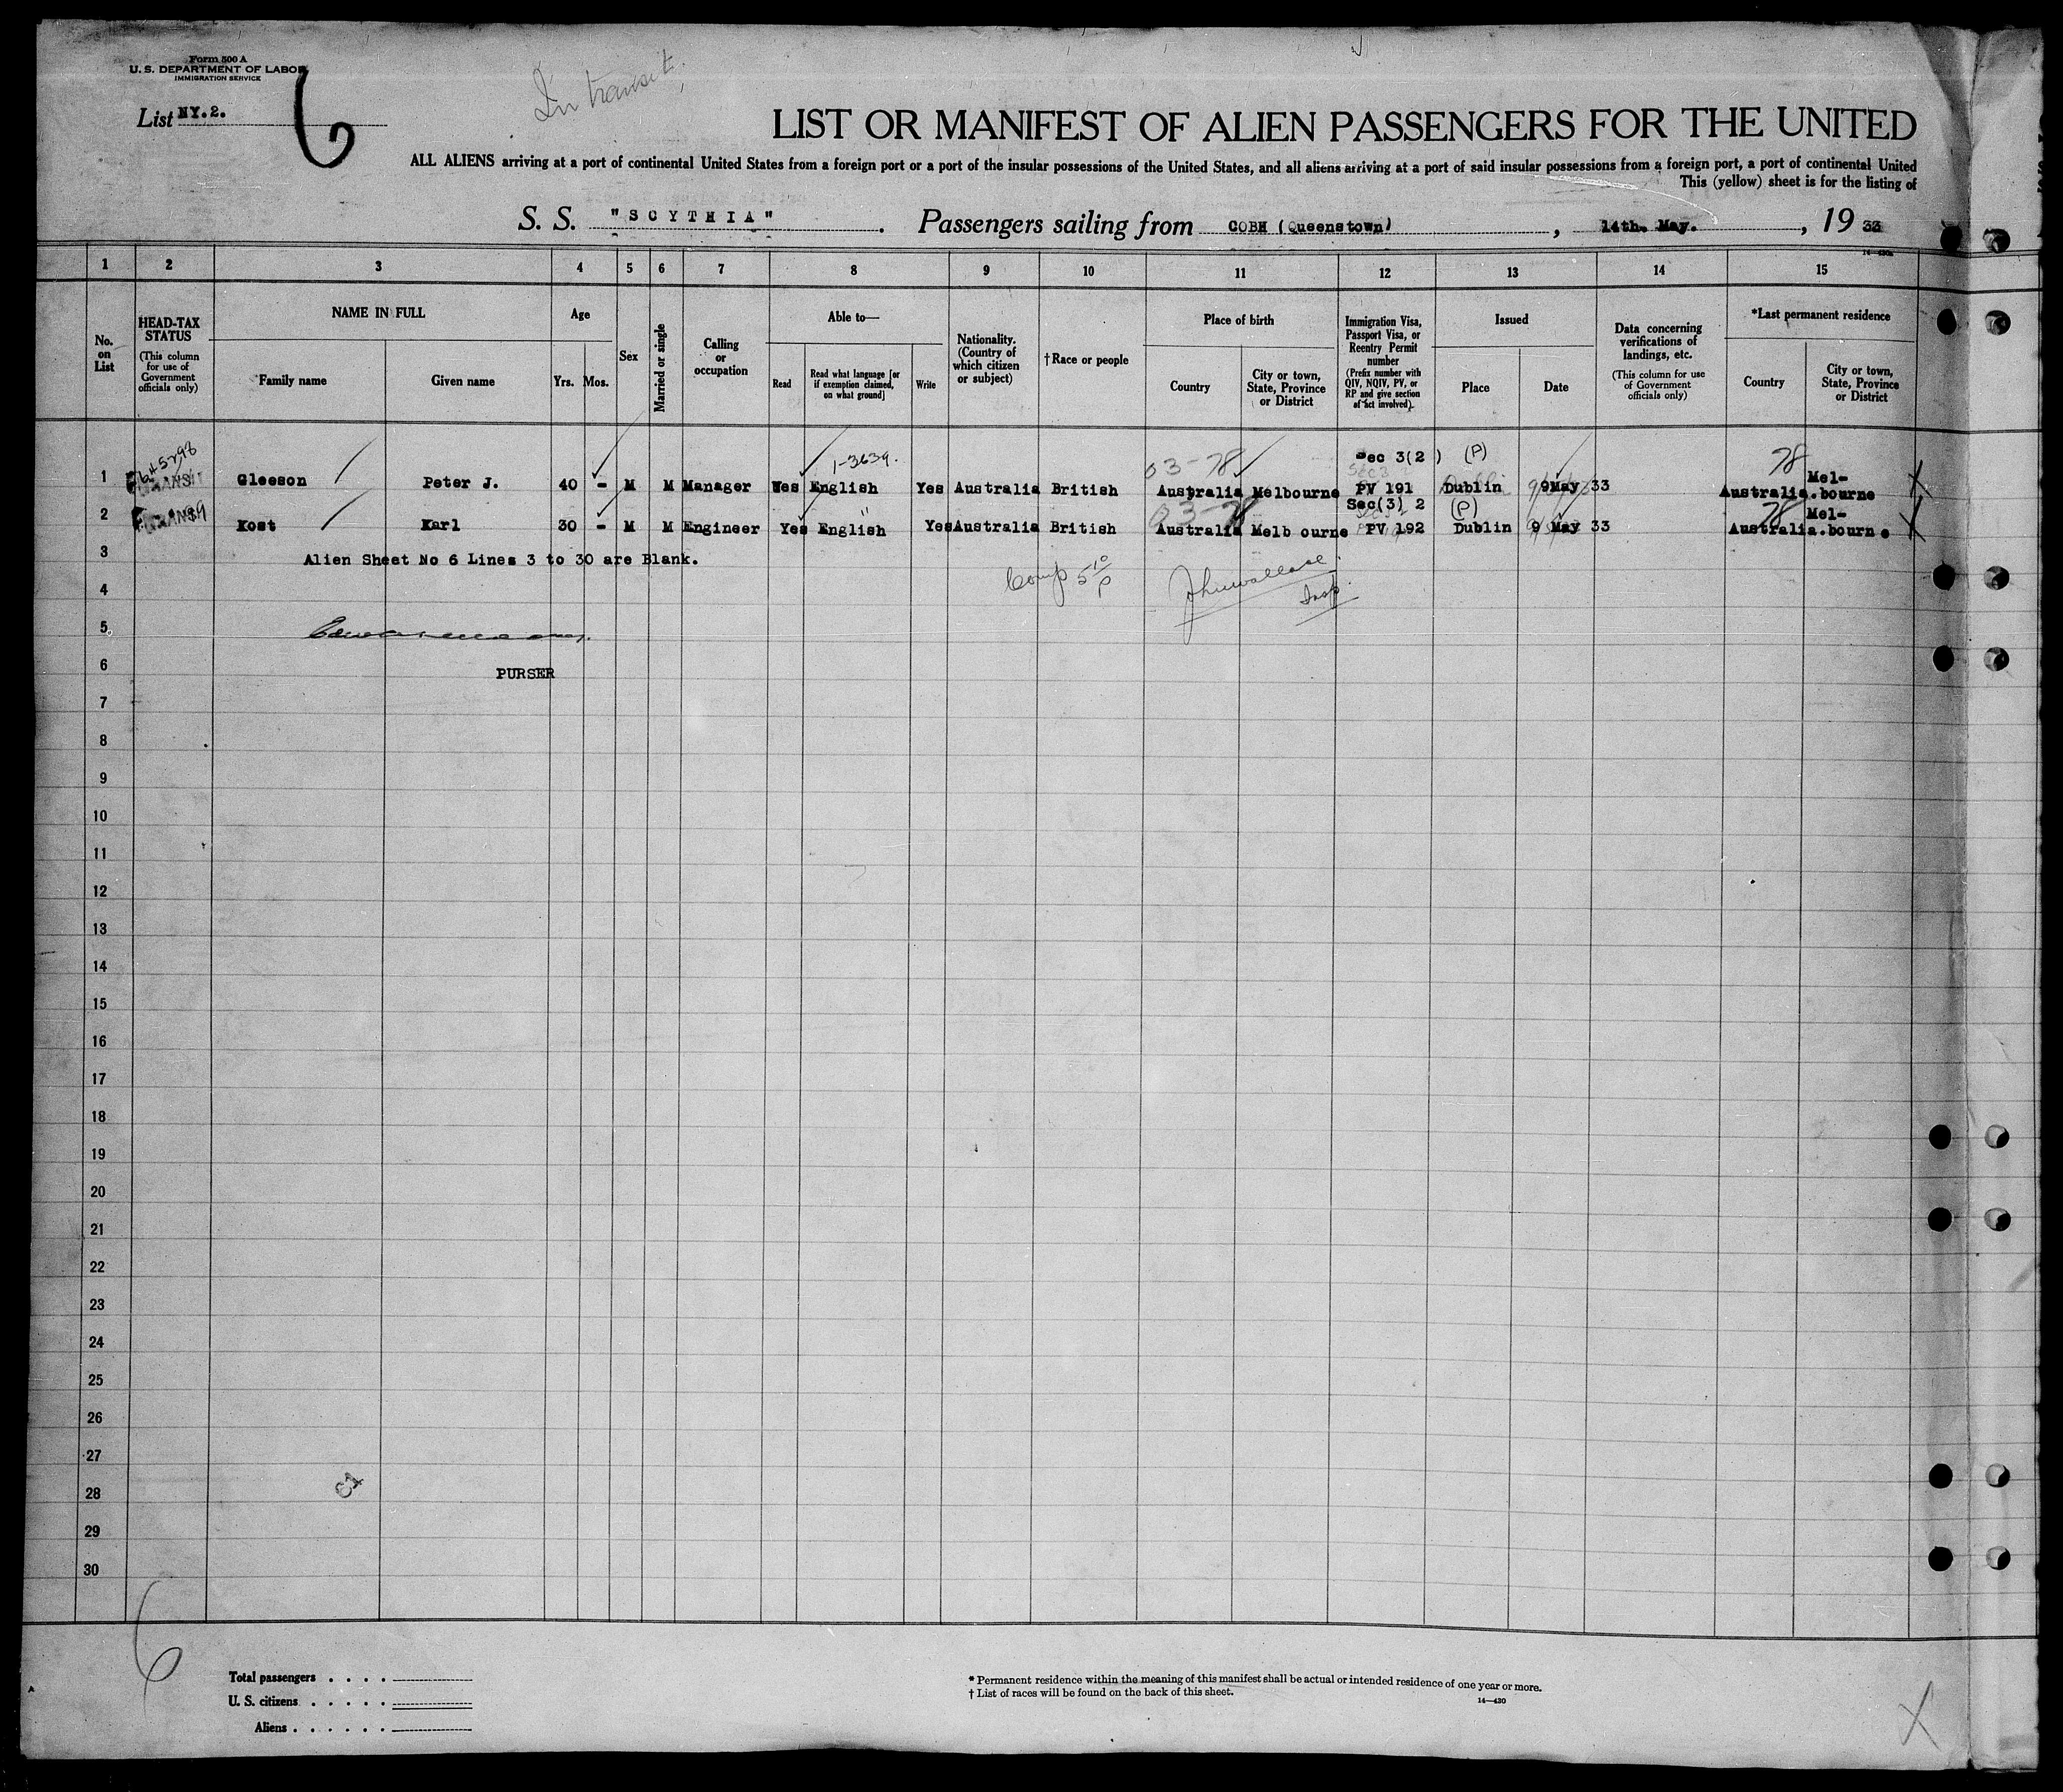 Form 500 A
U. S. DEPARTMENT OF LABOR
IMMIGRATION SERVICE
List NY.2.
6
In transit,
LIST OR MANIFEST OF ALIEN PASSENGERS FOR THE UNITED
ALL ALIENS arriving at a port of continental United States from a foreign port or a port of the insular possessions of the United States, and all aliens arriving at a port of said insular possessions from a foreign port, a port of continental United
This (yellow) sheet is for the listing of
S. S. "SCYTHIA" . Passengers sailing from COBH (Queenstown) , 14th. May. , 19 33
14—430a
1 2 3 4 5 6 7 8 9 10 11 12 13 14 15
No. on List
HEAD-TAX STATUS (This column for use of Government officials only)
NAME IN FULL
Family name Given name
Age
Yrs. Mos.
Sex
Married or single
Calling or occupation
Able to—
Read Read what language [or if exemption claimed, on what ground] Write
Nationality. (Country of which citizen or subject)
†Race or people
Place of birth
Country City or town, State, Province or District
Immigration Visa, Passport Visa, or Reentry Permit number (Prefix number with QIV, NQIV, PV, or RP and give section of act involved).
Issued
Place Date
Data concerning verifications of landings, etc. (This column for use of Government officials only)
*Last permanent residence
Country City or town, State, Province or District
645298 1-3639. 03-78 Sec 3(2) (P) 78
1 TRANSIT Gleeson Peter J. 40 - M M Manager Yes English Yes Australia British Australia Melbourne PV 191 Dublin 9May 33 Australia. Mel-bourne
03-78 Sec(3) 2 (P) 78
2 Kost Karl 30 - M M Engineer Yes English " Yes Australia British Australia Melb ourne PV 192 Dublin 9 May 33 Australia. Mel-bourn e
3 Alien Sheet No 6 Lines 3 to 30 are Blank.
Comp 5 10 P
4 Insp.
5
6 PURSER
7
8
9
10
11
12
13
14
15
16
17
18
19
20
21
22
23
24
25
26
27
28
29
30
6
Total passengers . . . .
U. S. citizens . . . . .
Aliens . . . . . .
* Permanent residence within the meaning of this manifest shall be actual or intended residence of one year or more.
† List of races will be found on the back of this sheet.
14—430
X